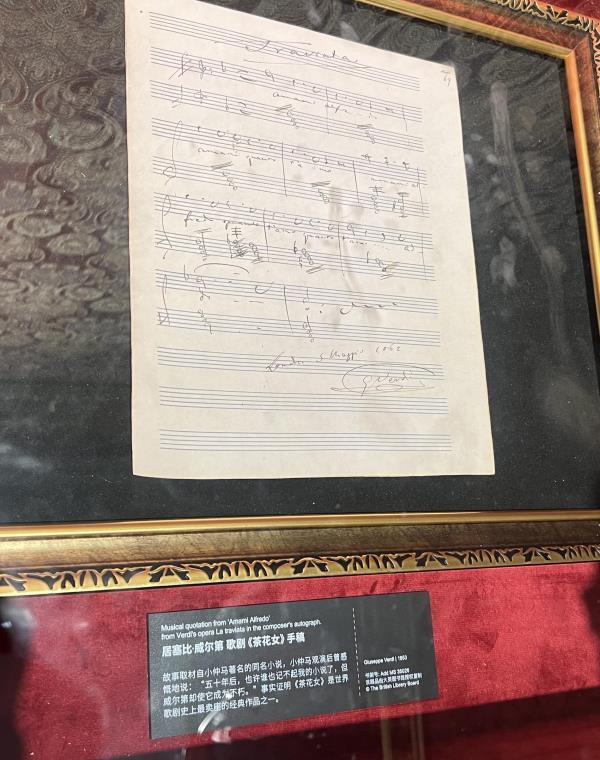 Traviata
Amami Alfre
London 5 Maggio 1862
G Verdi
Musical quotation from 'Amami Alfredo'
from Verdi's opera La traviata in the composer's autograph.
居塞比·威尔第 歌剧《茶花女》手稿
故事取材自小仲马著名的同名小说，小仲马观演后曾感
慨地说：“五十年后，也许谁也记不起我的小说了，但
威尔第却使它成为不朽。”事实证明《茶花女》是世界
歌剧史上最卖座的经典作品之一。
Giuseppe Verdi | 1853
书架号: Add MS 35026
本展品由大英图书馆授权复制
© The British Library Board